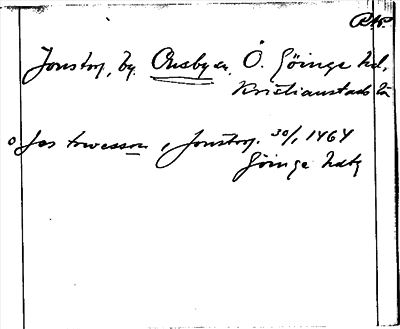 Jonstorp, by. Önsby sn, Ö. Göinge hd,
Kristianstads län
o Jes twesson, Jonstorp. 30/1 1464
Göinge hdtg